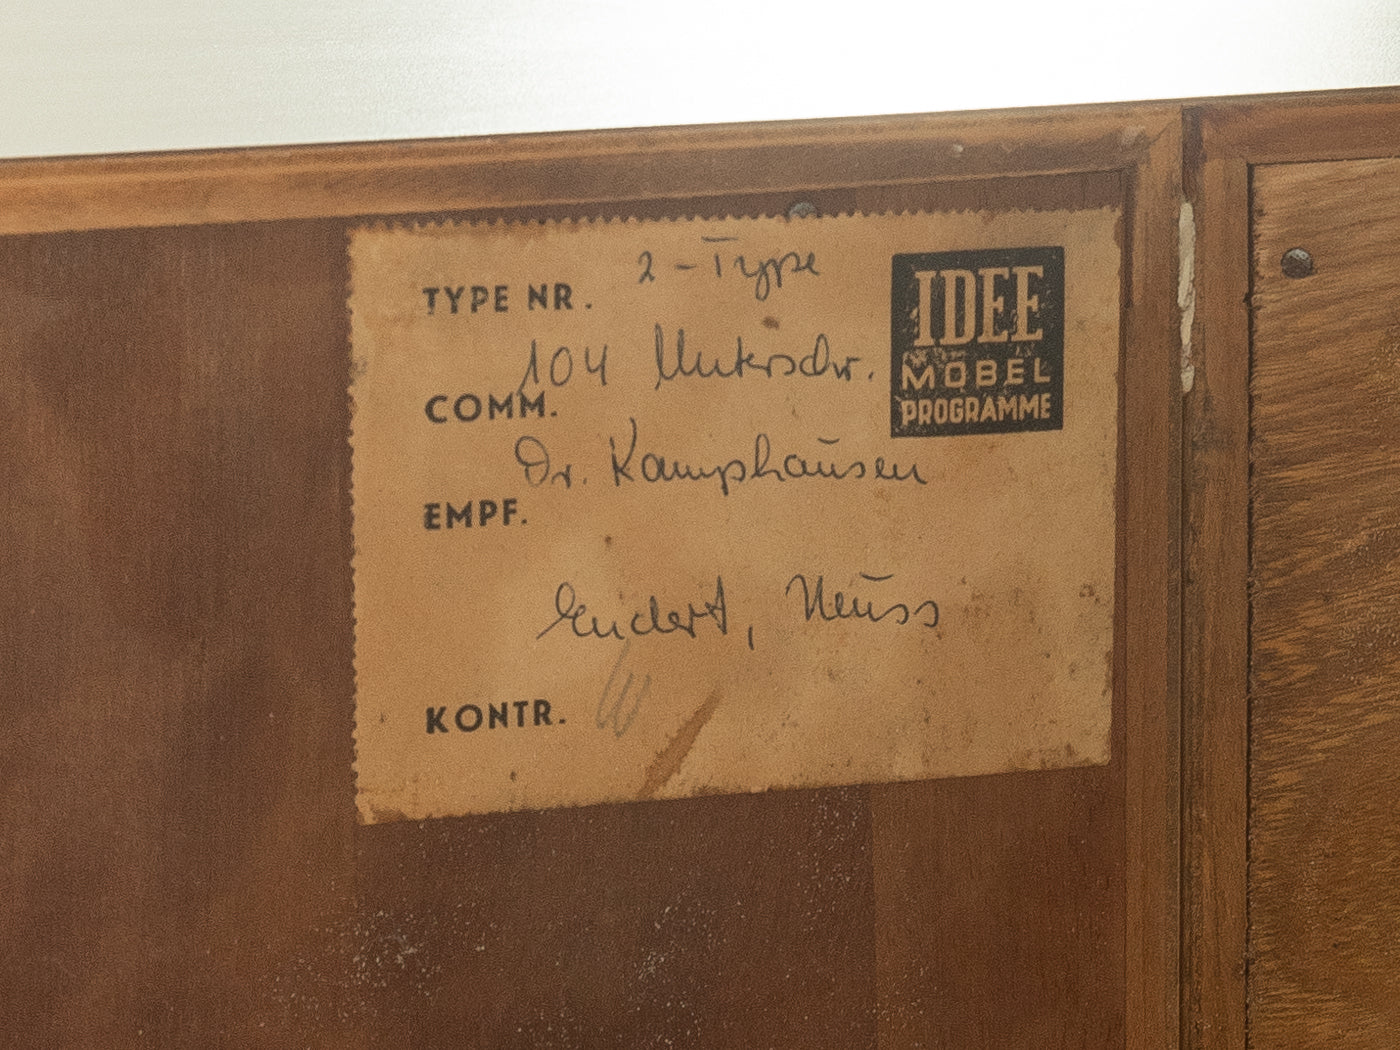 2-Type
TYPE NR.
104 Unterschr.
COMM.
Dr. Kamphausen
EMPF.
Endert, Neuss
KONTR.
IDEE
MÖBEL
PROGRAMME